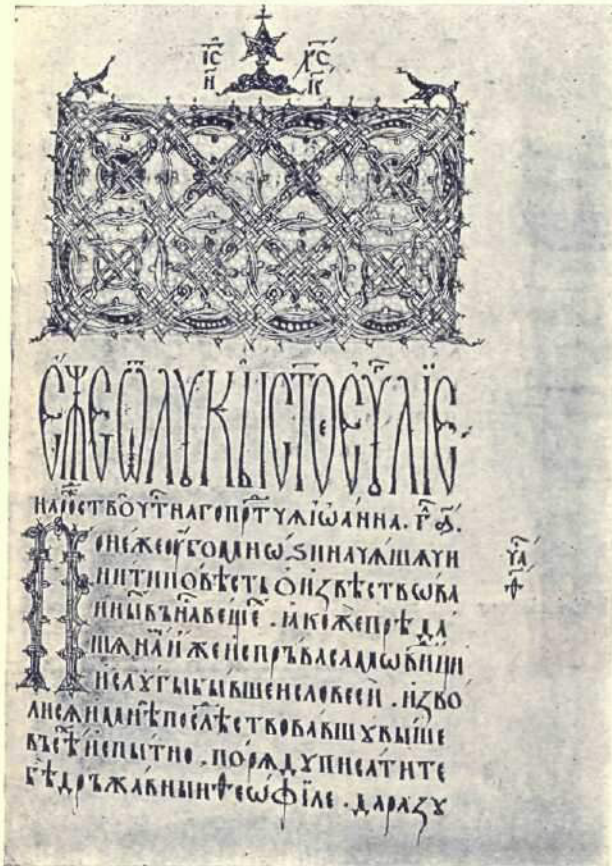 іс҃ хс҃
н к
еже ѿ лꙋкы ст҃ое еѵ҃лїе
на рож҇ство ч҇тнаго прд҇тчѧ іѡанна. г҃л а҃.
Понеже оубо мноѕи начѧшѧ чи
нити повѣсть о извѣствова
нныⷯ въ наⷭ҇ вещеⷯ. ꙗкоже прѣда
шѧ наⷨ иже испръва самовидци
и слоугы бывше словесѝ. изво
лисѧ и мнѣ послѣствовавшꙋ выше
въсѣⷨ испытно. порѧдꙋ писати те
бѣ дръжавныи ѳеѡфїле. да разꙋ